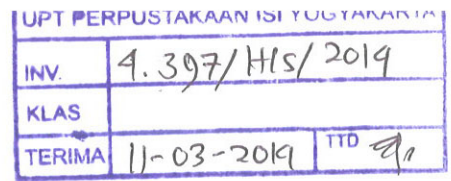 UPT PERPUSTAKAAN ISI YOGYAKARTA
INV. 4.397/HIS/2019
KLAS
TERIMA 11-03-2019 TTD